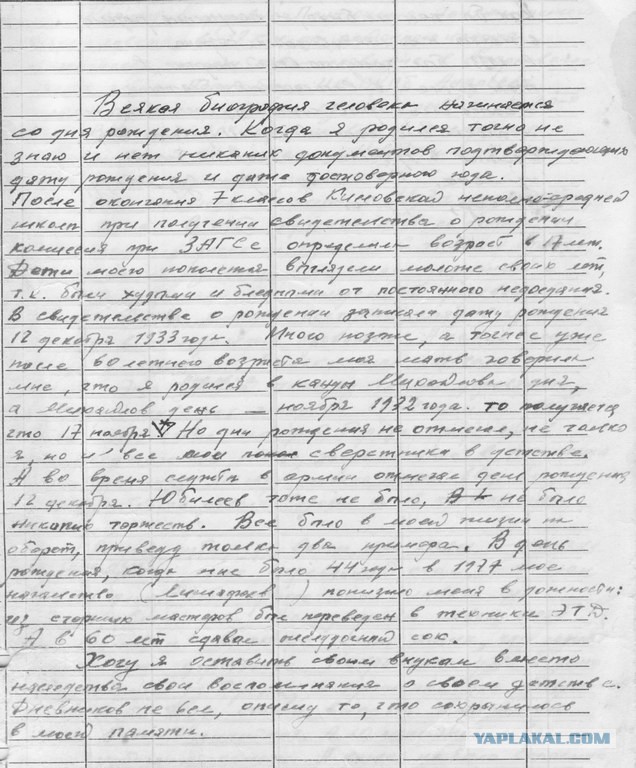 Всякая биография человека начинается
со дня рождения. Когда я родился точно не
знаю и нет никаких документов подтверждающих
дату рождения и даже достоверного года.
После окончания 7 классов неполно-средней
школы при получении свидетельства о рождении
комиссия при ЗАГСе определили возраст в 17 лет.
Дети моего поколения выглядели моложе своих лет,
т.к. были худыми и бледными от постоянного недоедания.
В свидетельстве о рождении записали дату рождения
12 декабря 1933 года. Много позже, а точнее уже
после 60 летнего возраста моя мать говорила
мне, что я родился в канун Михайлова дня,
а Михайлов день — ноября 1932 года. то получается
что 17 ноября. Но дни рождения не отмечал, не только
я, но и все мои сверстники в детстве.
А во время службы в армии отмечал день рождения
12 декабря. Юбилеев тоже не было, не было
никаких торжеств. Все было в моей жизни на
оборот, приведу только два примера. В день
рождения, когда мне было 44 года в 1977 мое
начальство ( ) понизило меня в должности:
из старших мастеров был переведен в техники ЭТД.
А в 60 лет сдавал желудочный сок.
Хочу я оставить своим внукам вместо
наследства свои воспоминания о своем детстве.
Дневников не вел, опишу то, что сохранилось
в моей памяти.
YAPLAKAL.COM